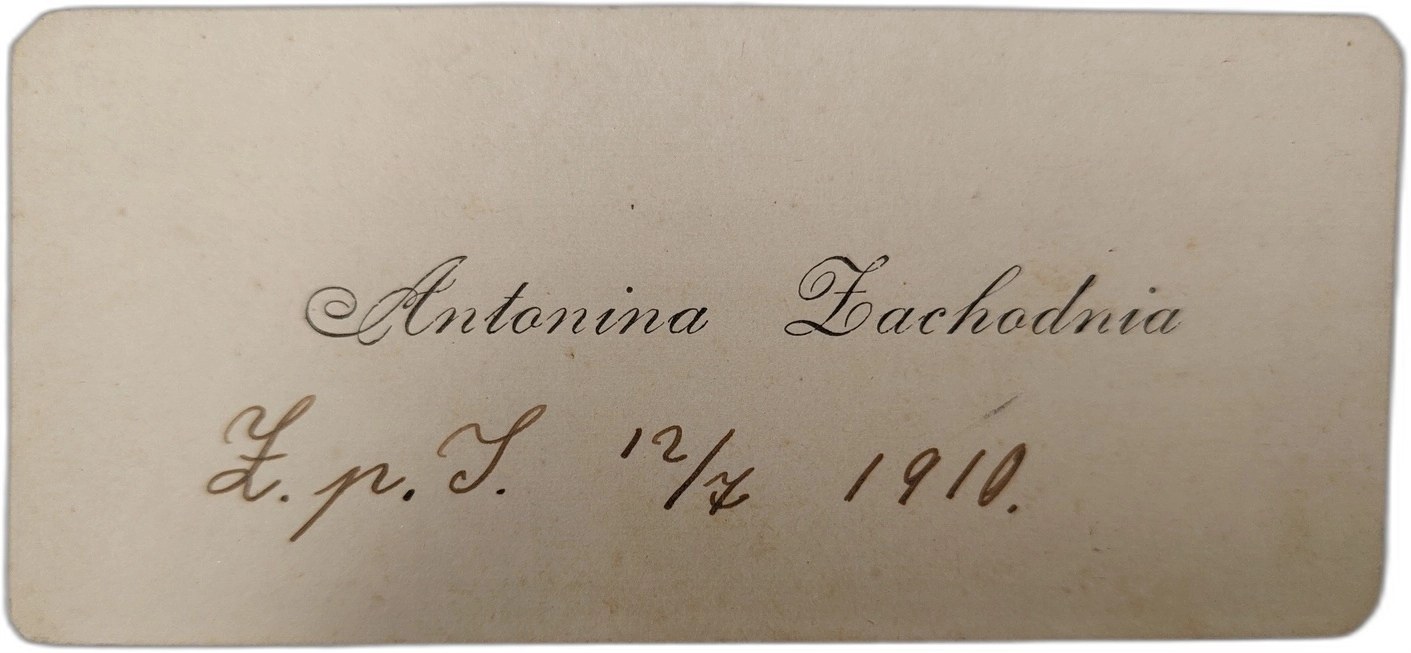 Antonina Zachodnia
Z. p. S. 12/7 1910.